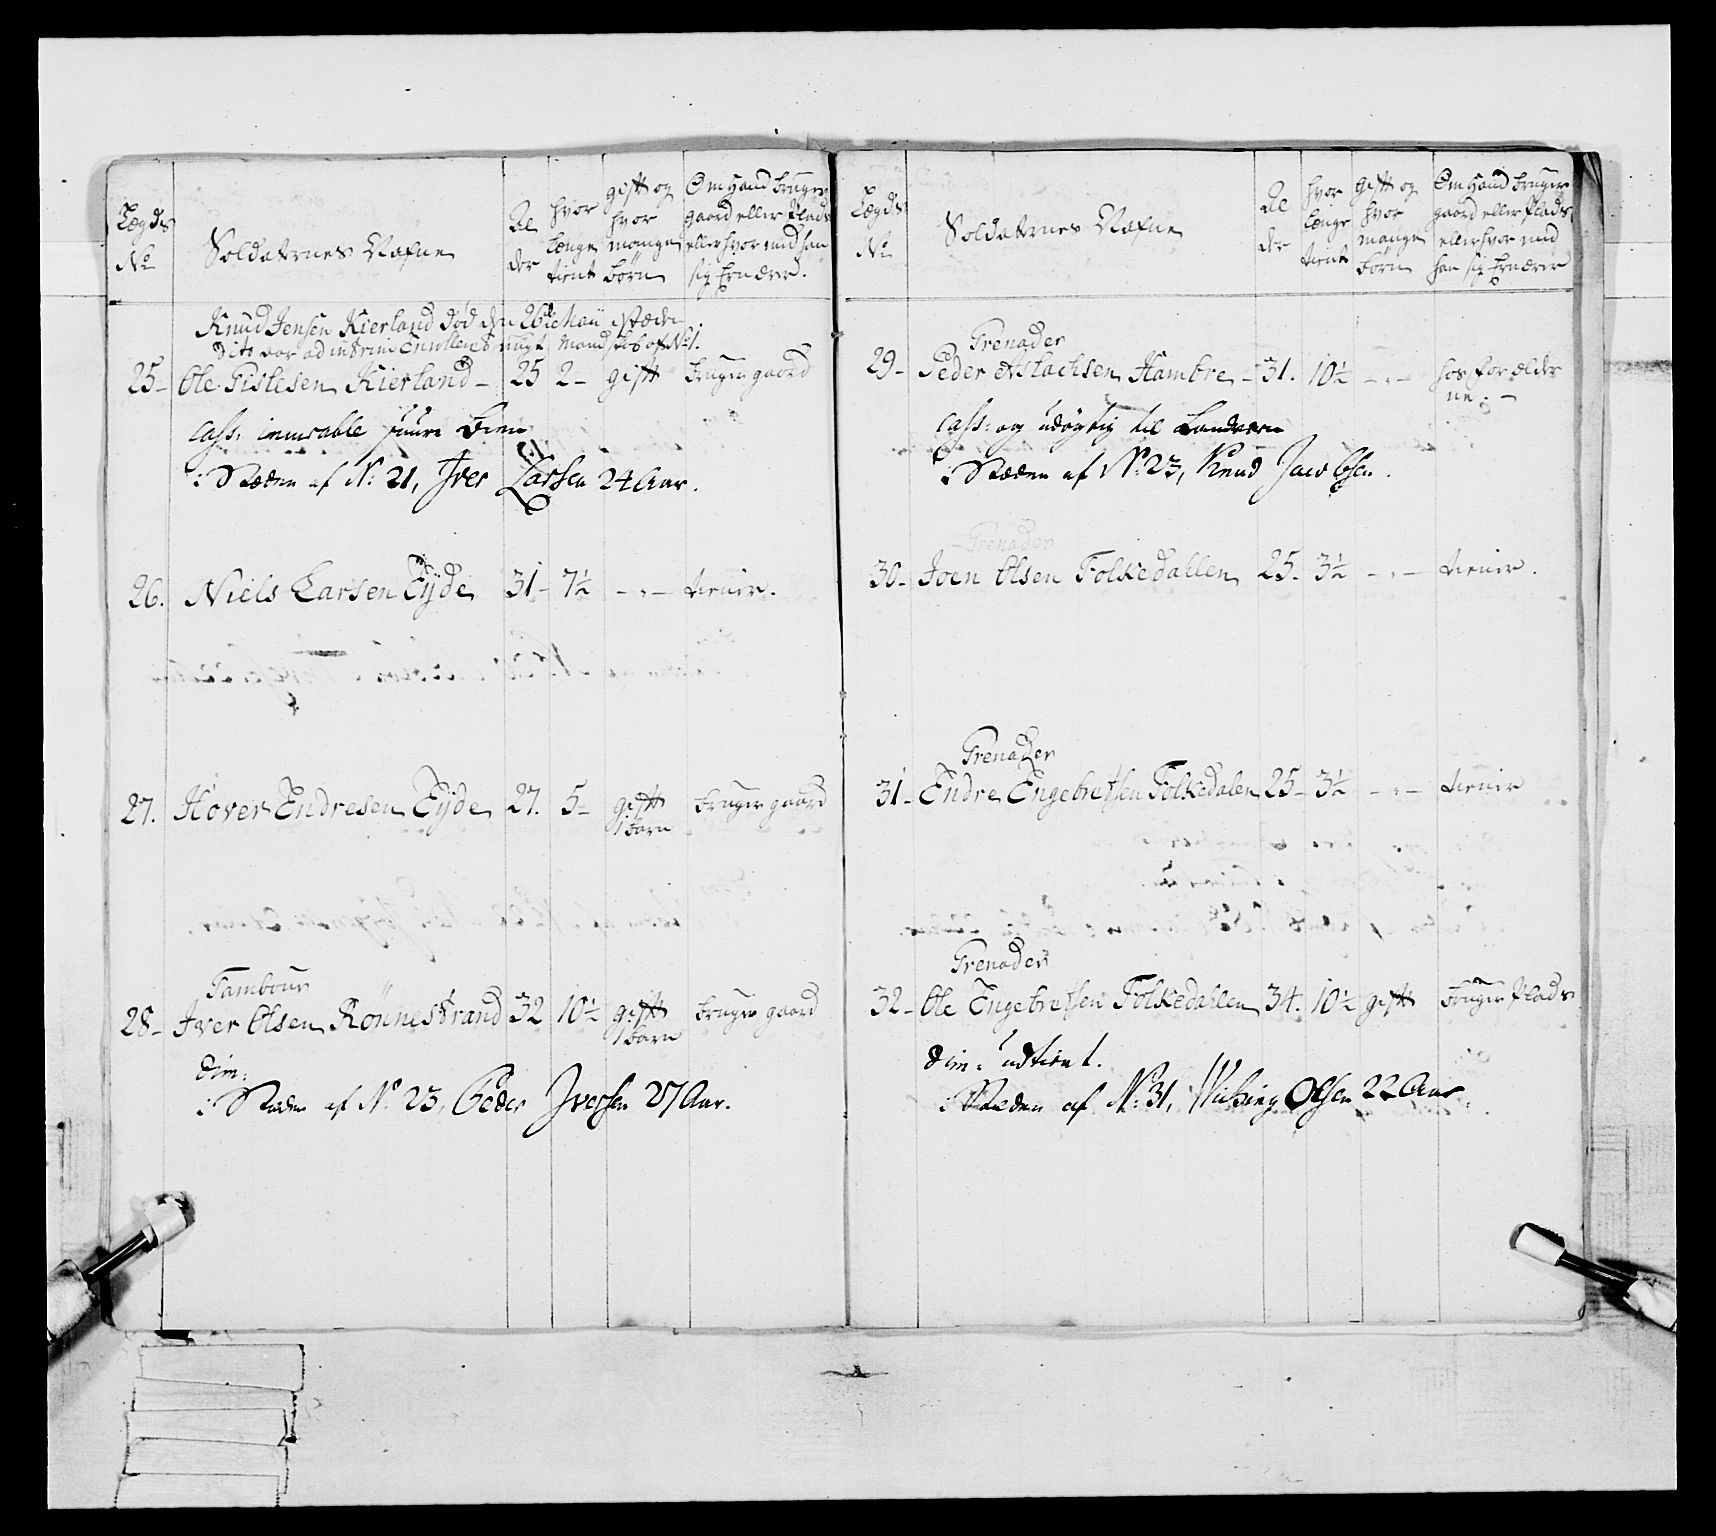 Lægds No
Soldaternes Nafne
Al der
hvor længe tient
gift og hvor mange børn
Om Hand bruger gaard eller Plads eller hvor med han sig Ernærer.
Knud Jensen Kierland død den 26de Maii i stæden
dito var ad interim mandskab af No 1.
25- Ole Gislesen Kierland - 25 2- gift bruger gaard
Cass: incurable Been
i Stæden af No: 21, Iver Larsen 24 Aar.
26. Niels Larsen Eyde 31- 7½ -"- tiener.
27. Hover Endresen Eyde 27. 5- gift 1 barn bruger gaard
Tambour
28- Iver Olsen Rönnestrand 32 10½ gift 1 barn bruger gaard
dim:
i Stæden af No. 23, Peder Iversen 27 Aar.
Lægds No
Soldaternes Nafne
Al der
hvor længe tient
gift og hvor mange børn
Om Hand bruger gaard eller Plads eller hvor med han sig Ernærer
Grenader
29- Peder Aslachsen Hambre - 31. 10½ -"- hos forældr ne. -
Cass: og udøgtig til Landværn
i Stæden af No: 23, Knud Jacobsen.
Grenader
30- Joen Olsen Folkedallen 25- 3½ -"- tiener.
Grenader
31- Endre Engebretsen Folkedalen 25- 3½ -"- tiener
Grenader
32- Ole Engebretsen Folkedallen 34. 10½ gift bruger Plads
dim: udtient.
i Stæden af No: 31, Wiching Olsen 22 Aar.